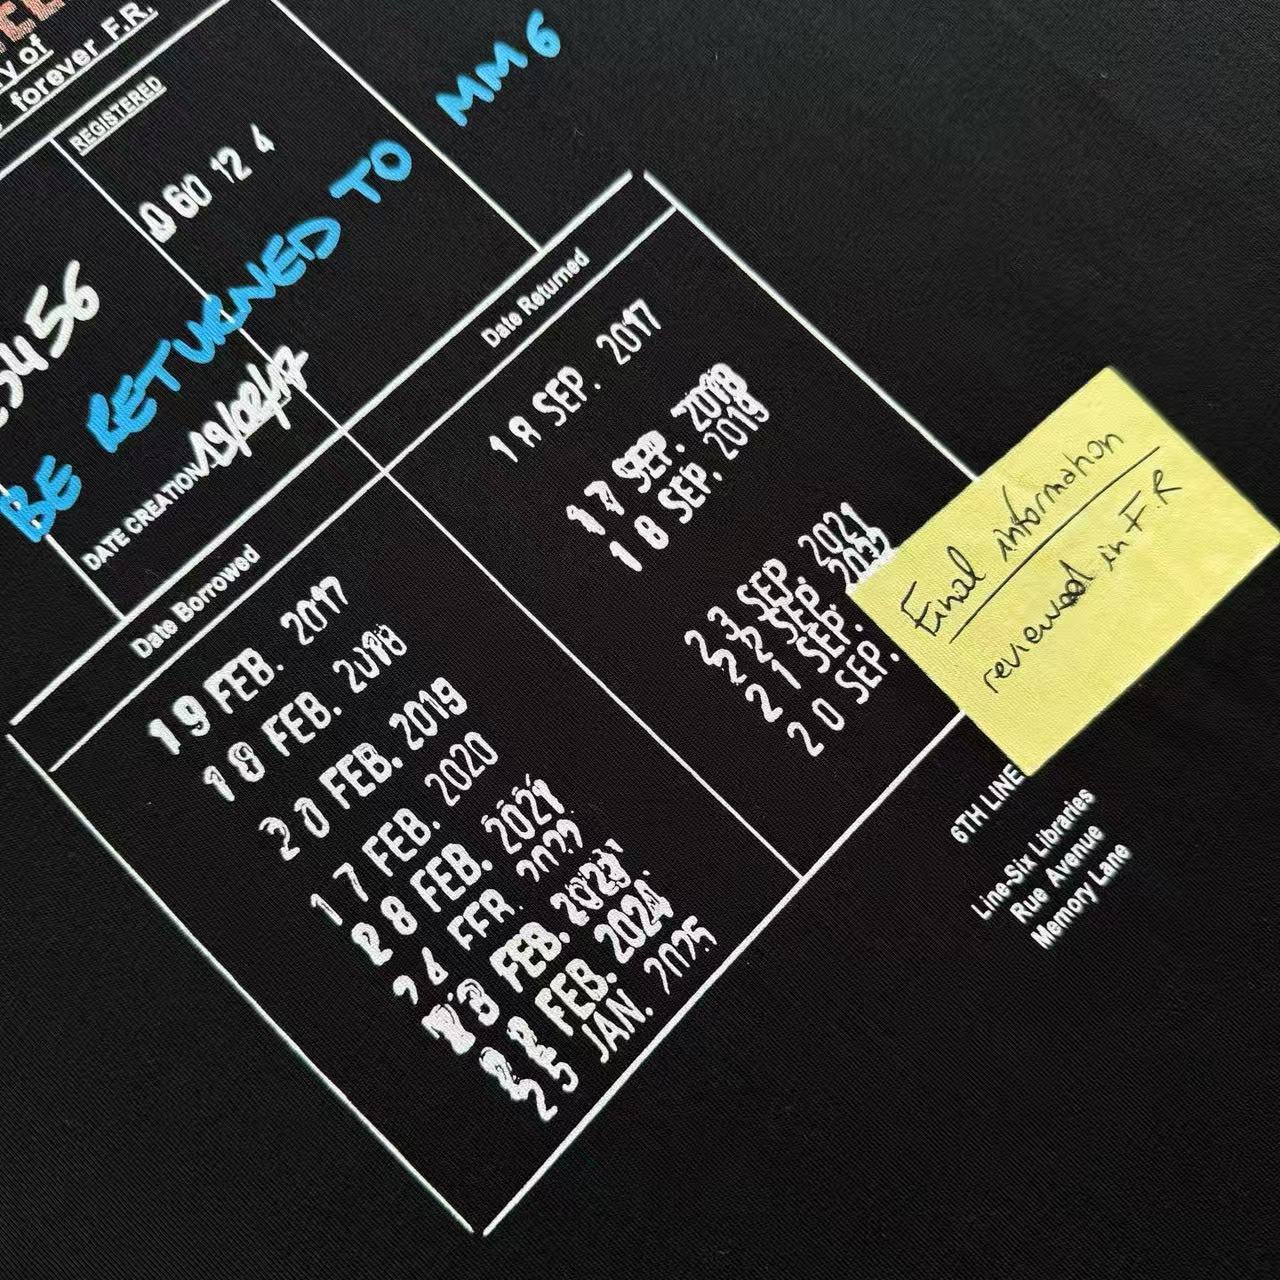 y of
forever F.R.
REGISTERED
60 12 4
MM 6
BE RETURNED TO
3456
DATE CREATION 19/02/17
Date Returned
18 SEP. 2017
17 SEP. 2018
18 SEP. 2019
23 SEP 2021
22 SEP.
21 SEP.
20 SEP.
Date Borrowed
19 FEB. 2017
19 FEB. 2018
20 FEB. 2019
17 FEB. 2020
28 FEB. 2021
24 FEB. 2022
FEB. 2023
22 FEB. 2024
25 JAN. 2025
Final information
reviewed in F.R
6TH LINE
Line-Six Libraries
Rue Avenue
Memory Lane